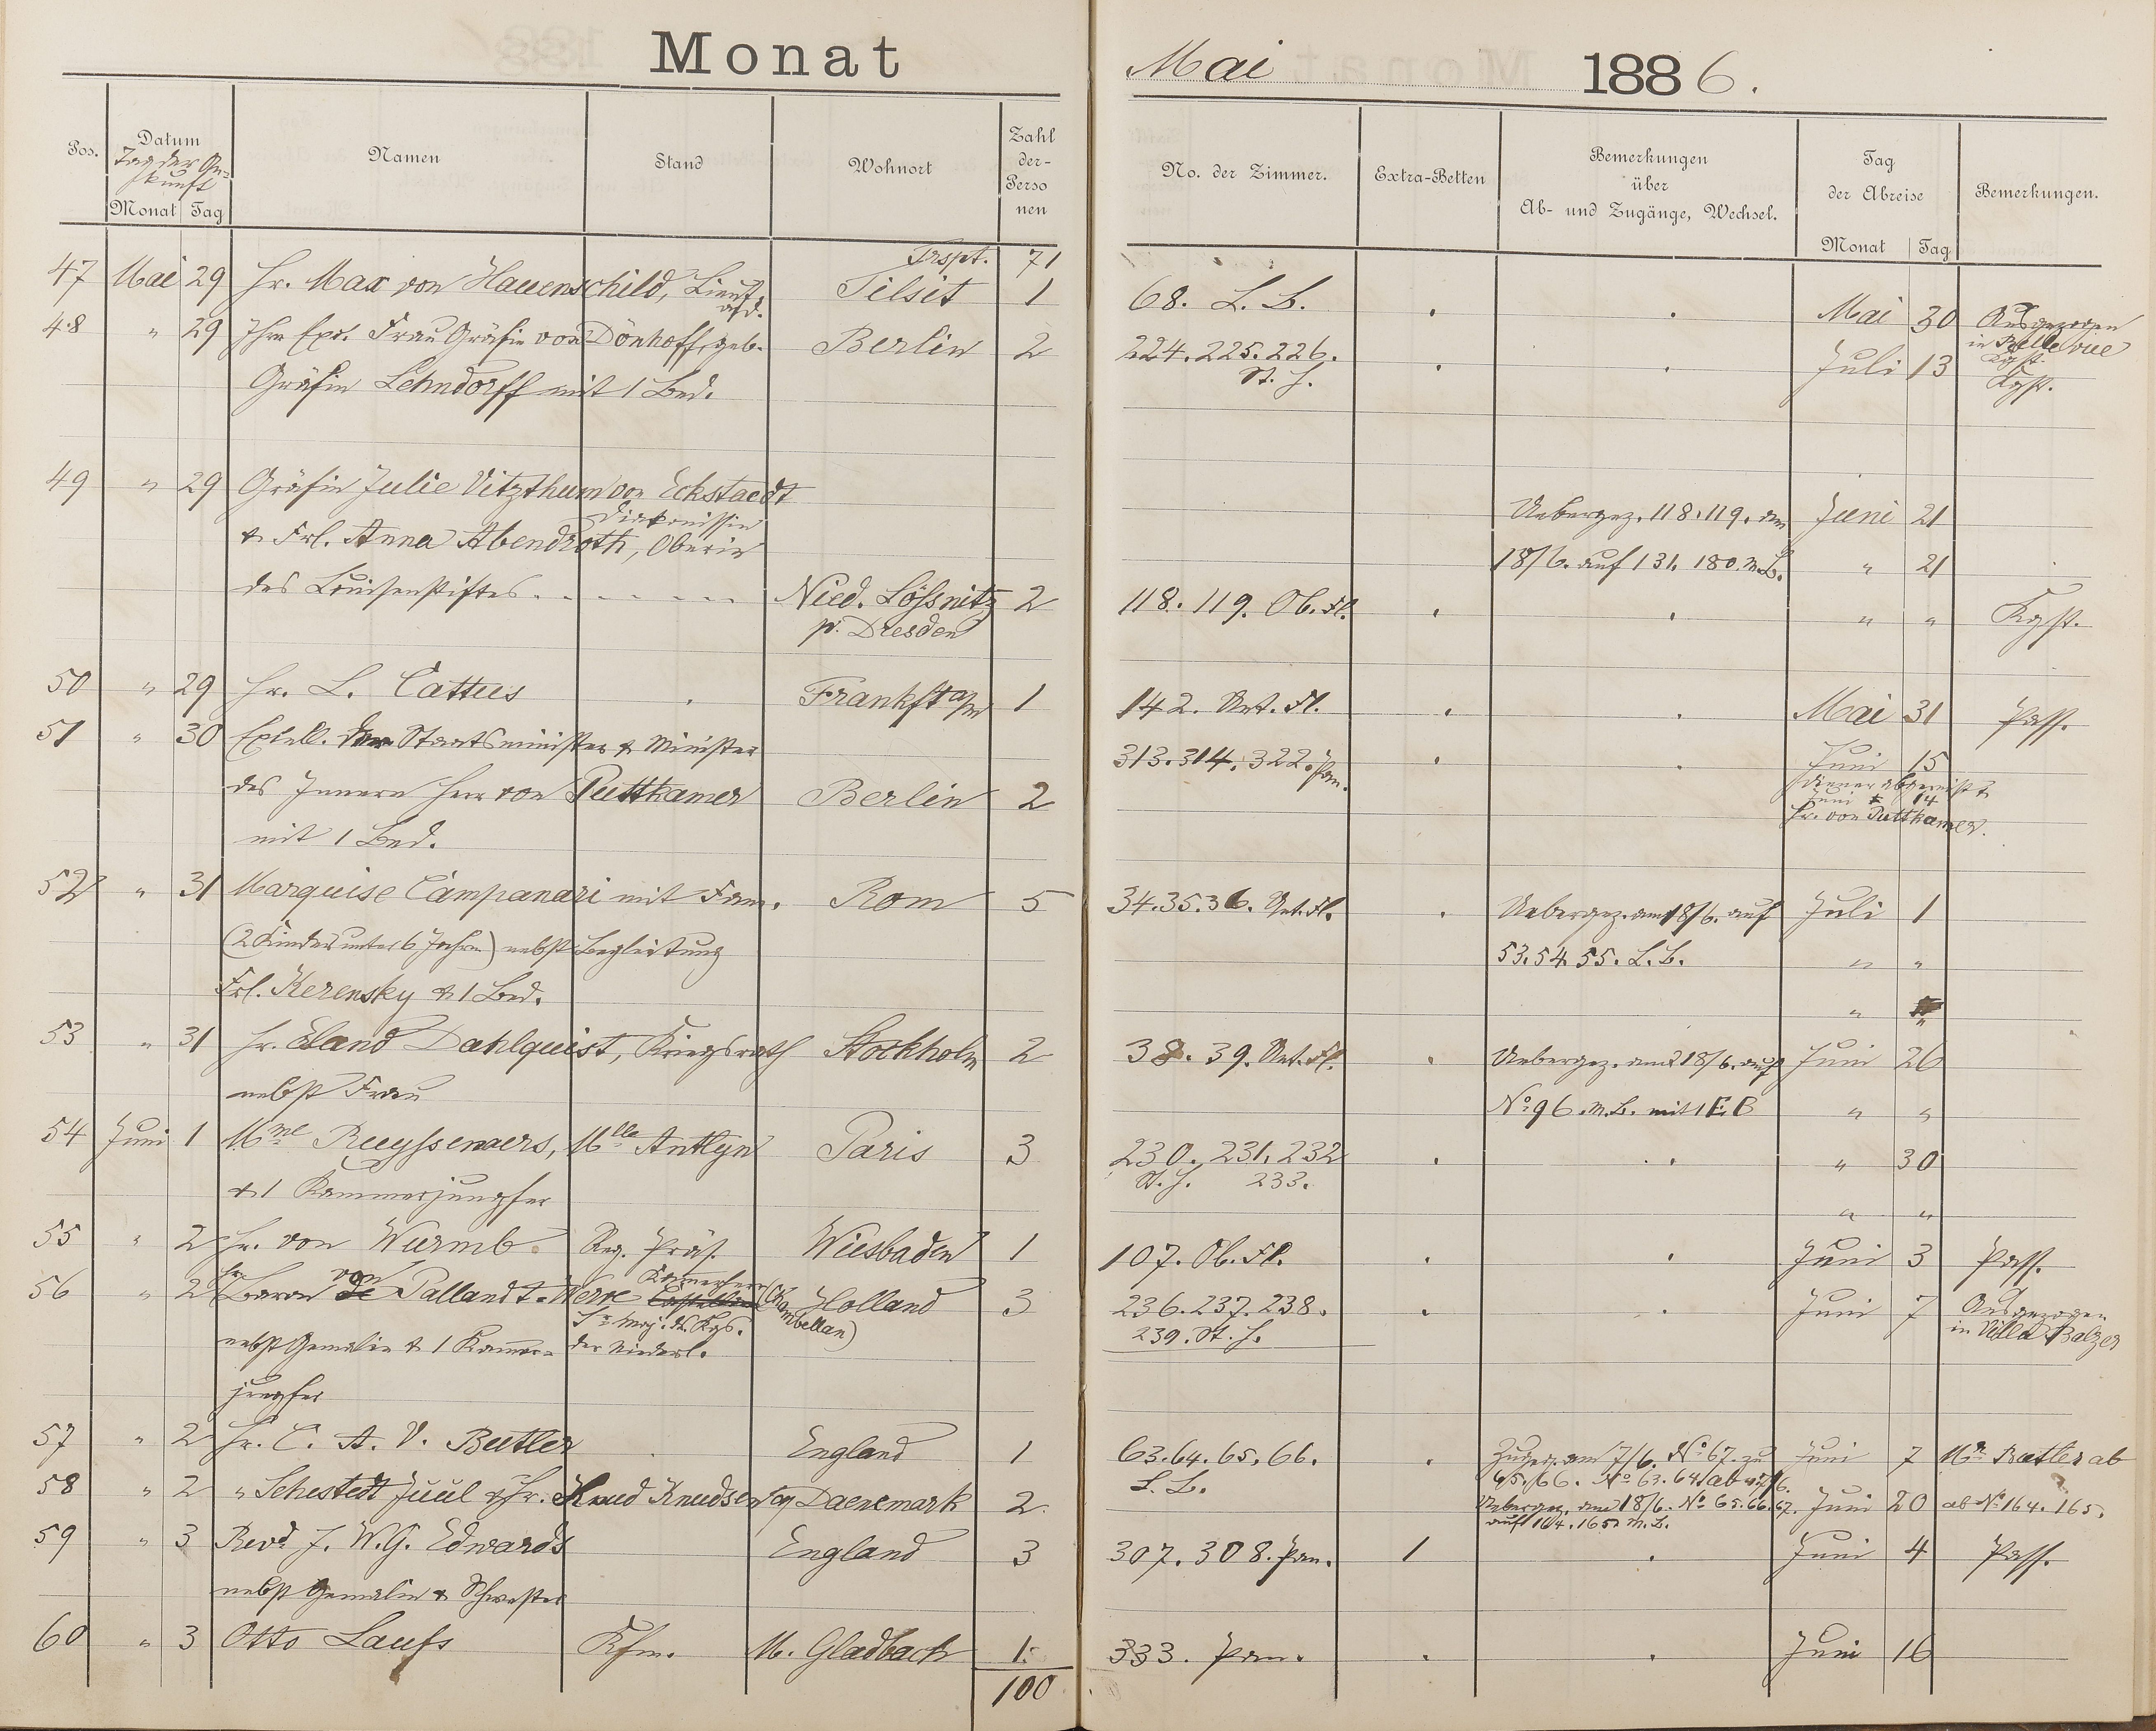 Monat
Mai 1886.
Pos. Datum Namen Stand Wohnort Zahl der Perso nen
Tag der An=
kunft
Monat Tag
No. der Zimmer. Extra-Betten Bemerkungen über Ab- und Zugänge, Wechsel. Tag der Abreise Bemerkungen.
Monat Tag
Trspt. 71
47 Mai 29 Hr. Max von Hauenschild, Lieut. Tilsit 1 68. L. B. Mai 30 Ausgezogen
a/D. in Bellevue
48 " 29 Ihre Exc. Frau Gräfin von Dönhoff, geb. Berlin 2 224. 225. 226. Juli 13 Kgst.
Gräfin Lehndorff mit 1 Bed. St. H. Kgst.
49 " 29 Gräfin Julie Vitzthum von Eckstaedt Uebergez. 118. 119. am Juni 21
Diakonissin
& Frl. Anna Abendroth, Oberin 18/6. auf 131. 180. M.B. " 21
des Louisenstiftes Nied. Lössnitz 2 118. 119. Ob. Fl. " " Kgst.
p. Dresden
50 " 29 Hr. L. Cattus Frankft a/M 1 142. Unt. Fl. Mai 31 Pass.
51 " 30 Excell. Staatsminister & Minister 313. 314. 322. Pan. Juni 15
des Innern Herr von Puttkamer Berlin 2 Diener abgereist &
Juni 14
mit 1 Bed. Hr. von Puttkamer.
52 " 31 Marquise Campanari mit Fam. Rom 5 34. 35. 36. Unt. Fl. Uebergez. am 18/6. auf Juli 1
(2 Kinder unter 6 Jahren) nebst Begleitung 53. 54. 55. L. B. " "
Frl. Kerensky & 1 Bed. " "
53 " 31 Hr. Eland Dahlquist, Kriegsrath Stockholm 2 38. 39. Unt. Fl. Uebergez. am 18/6. auf Juni 26
nebst Frau No 96. M. B. mit 1 E. B " "
54 Juni 1 Mme Ruyssenaers, Mlle Antlyn Paris 3 230. 231. 232 " 30
& 1 Kammerjungfer St. H. 233.
" "
55 " 2 Hr. von Wurmb. Reg. Präs. Wiesbaden 1 107. Ob. Fl. Juni 3 Pass.
56 " 2 Hr. Baron von de Pallandt-Neerre Kammerherr (Chambellan) Holland 3 236. 237. 238. Juni 7 Ausgezogen
Sr. Maj. des Kgs. 239. St. H. in Villa Balzer
nebst Gemalin & 1 Kammer= der Niederl.
jungfer
57 " 2 Hr. C. A. V. Butler England 1 63. 64. 65. 66. Zugez. am 7/6. No 67. zu Juni 7 Mr. Butler ab
L. B. 65. 66. No 63. 64 ab
58 " 2 " Sehestedt Juul & Hr. Knud Knudsen Daenemark 2 Uebergez. am 18/6. No 65. 66. 67. Juni 20 ab No 164. 165.
auf 164. 165. M. B.
59 " 3 Revd. J. W. G. Edwards England 3 307. 308. Pan. 1 Juni 4 Pass.
nebst Gemalin & Schwester
60 " 3 Otto Laufs Kfm. M. Gladbach 1 333. Pan. Juni 16
100